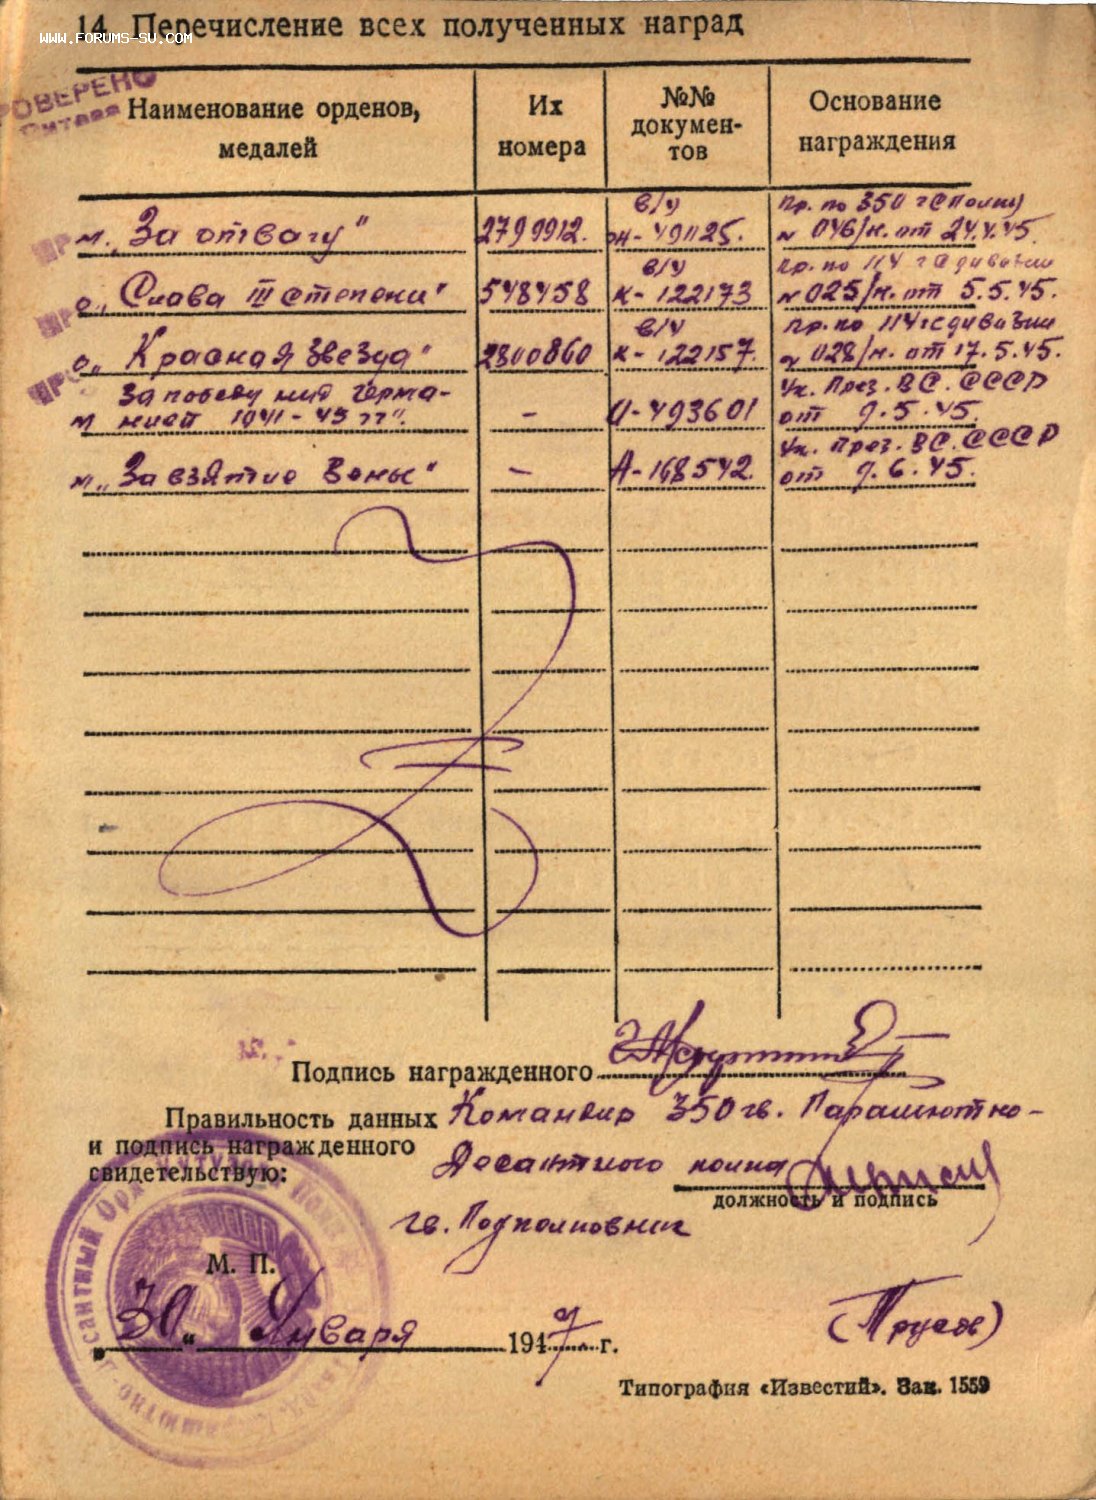 14. Перечисление всех полученных наград
WWW.FORUMS-SU.COM
ПРОВЕРЕНО
Наименование орденов, медалей
Их номера
№№ документов
Основание награждения
м. „За отвагу" 2799912. в/ч Ж-491125. Пр. по 350 гСПолку № 046/н. от 24.4.45.
о. „Слава III степени" 548458 в/ч К-122173 Пр. по 114 гсдивизии № 025/н. от 5.5.45.
о. „Красная звезда" 2300860 в/ч К-122157. Пр. по 114 гсдивизии № 028/н. от 17.5.45.
м За победу над Германией 1941-45 гг". — И-493601 Ук. През. ВС. СССР от 9.5.45.
м. „За взятие Вены" — А-168542. Ук. През. ВС. СССР от 9.6.45.
Подпись награжденного
Правильность данных Командир 350 гв. Парашютно-
и подпись награжденного
свидетельствую: Десантного полка
должность и подпись
гв. Подполковник
М. П.
„30" Января 1947 г.
(Трусов)
Типография «Известий». Зак. 1559